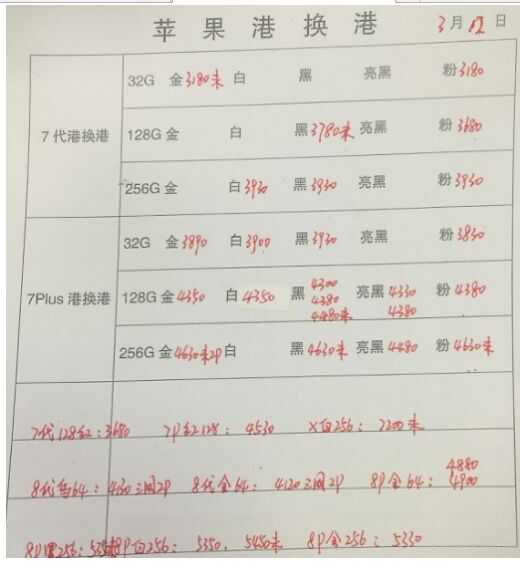 苹果港换港 3月12日
32G 金3180未 白 黑 亮黑 粉3180
7代港换港 128G 金 白 黑3780未 亮黑 粉3680
256G 金 白3930 黑3930 亮黑 粉3930
32G 金3890 白3900 黑3930 亮黑 粉3830
7Plus 港换港 128G 金4350 白4350 黑4300 亮黑4330 粉4380
4380 4380
4480未
256G 金4630未2P 白 黑4630未 亮黑4480 粉4630未
7代128红:3680 7P红128:4530 X白256:7200未
4880
8代 64: 三网2P 8代金64:4120三网2P 8P金64:4900
8P黑256: 8P白256:5350、5450未 8P金256:5330